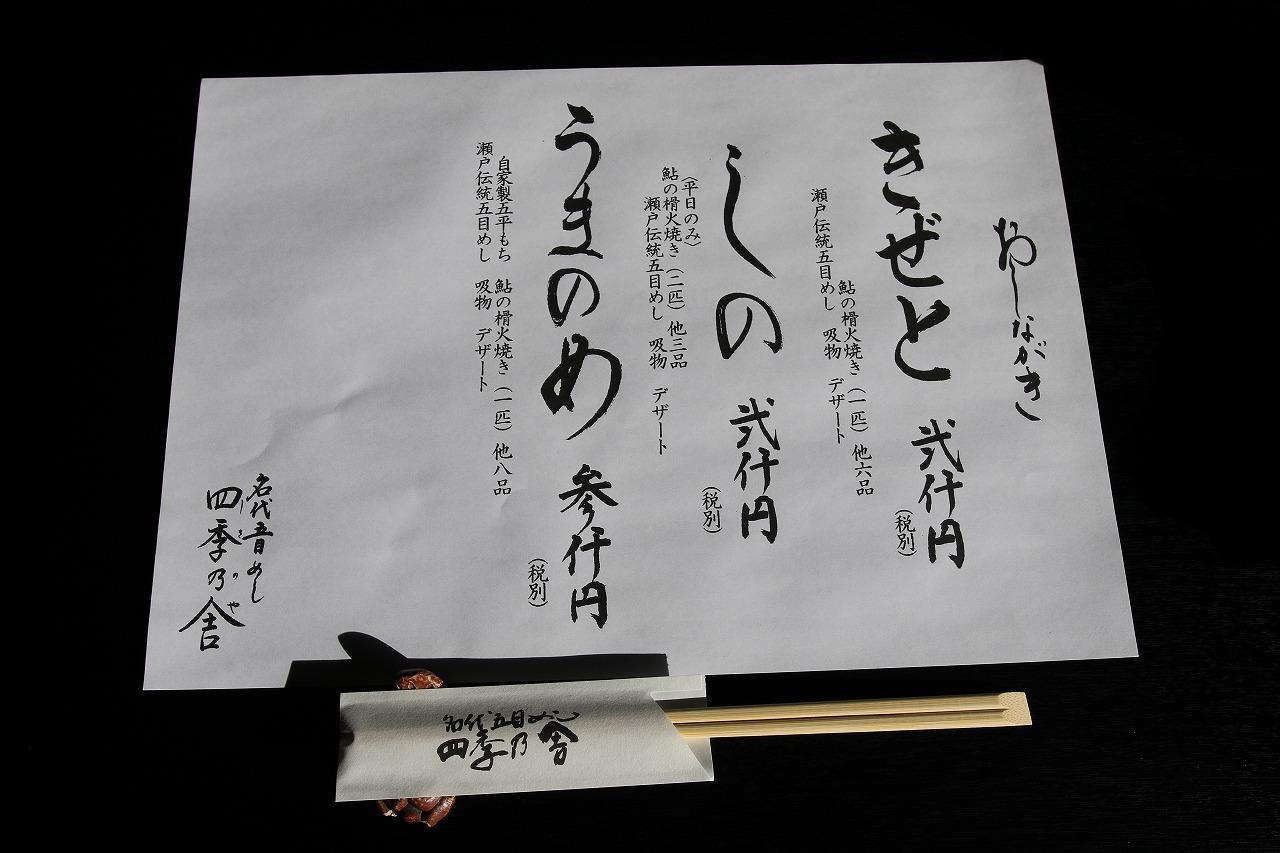 おしながき
きぜと 弐仟円
(税別)
鮎の榾火焼き(一匹) 他六品
瀬戸伝統五目めし 吸物 デザート
しの 弐仟円
(税別)
(平日のみ)
鮎の榾火焼き(二匹) 他三品
瀬戸伝統五目めし 吸物 デザート
うまのめ 参仟円
(税別)
自家製五平もち 鮎の榾火焼き(一匹) 他八品
瀬戸伝統五目めし 吸物 デザート
名代五目めし
四季乃舎
名代五目めし
四季乃舎